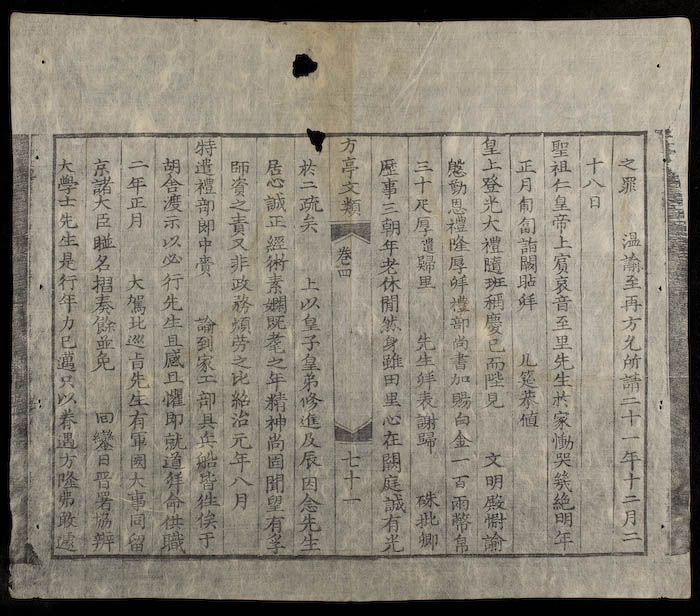 之罪　溫諭至再方允所請二十一年十二月二
十八日
聖祖仁皇帝上賓哀音至里先生扵家慟哭幾絶明年
正月匍匐詣闕貼拜　几筵恭値
皇上登光大禮隨班稱慶已而陛見　文明殿慰諭
慇勤恩禮隆厚拜禮部尚書加賜白金一百兩幣帛
三十疋厚遣歸里　先生拜表謝歸　硃批卿
歷事三朝年老休閒然身雖田里心在闕庭誠有光
方亭文類　卷四　七十一
扵二疏矣　上以皇子皇弟修進及辰因念先生
居心誠正經術素嫻既耄之年精神尚固聞望有孚
師資之責又非政務煩劳之比紹治元年八月
特遣禮部郎中賫　諭到家工部具兵船皆徃俟于
胡舍渡示以必行先生且感且懼即就道拜命供職
二年正月　大駕北巡㫖先生有軍國大事同留
京諸大臣聨名摺奏餘並免　回鑾日晋署協辦
大學士先生是行年力已邁只以眷遇方隆弗敢遽